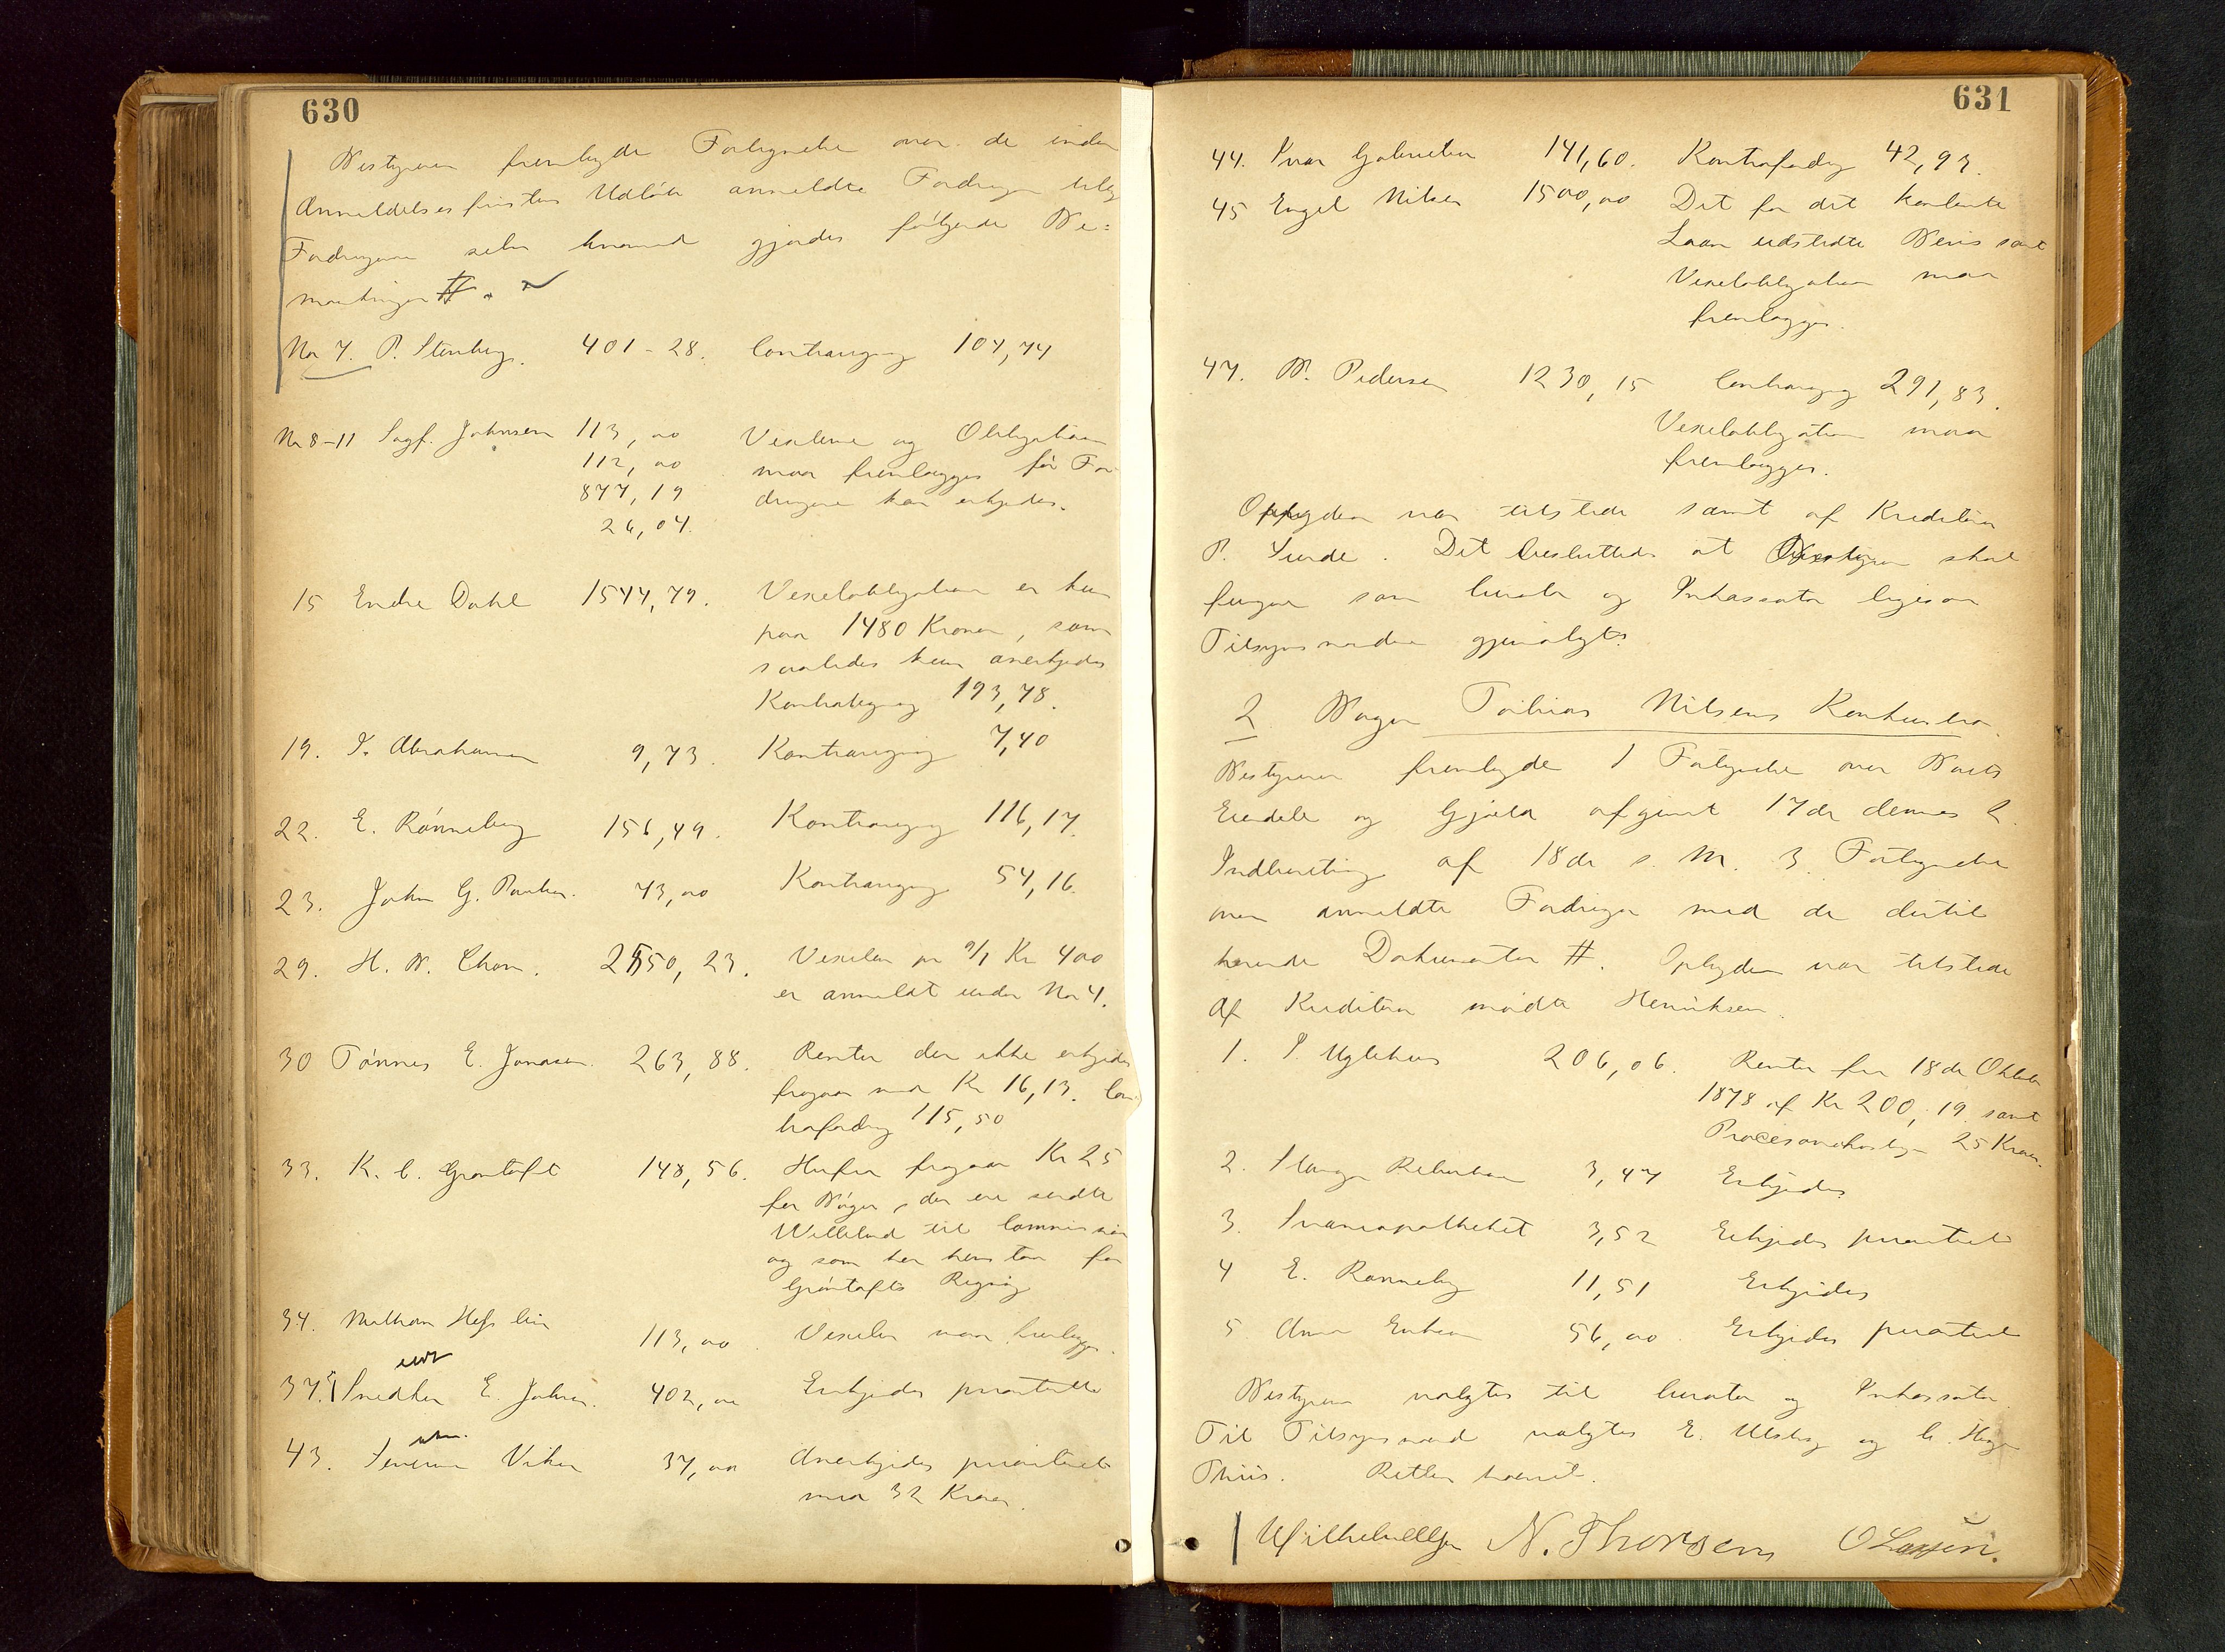 630
Bestyreren fremlagde Fortegnelse over de inden
Anmeldelsesfristens Udløb anmeldte Fordringer tillig
Fordringerne selv hvorved gjordes følgende Be=
mærkninger #.
No 7. P. Stenberg. 401-28. Contraregng 104,74
No 8-11 Sigf. Johnsen 113,00 Vexlerne og Obligationen
112,00 maa fremlægges før For
877,19 dringerne kan erkjendes.
26,04.
15 Endre Dahl 1544,79. Vexelobligationen er kun
paa 1480 Kroner, som
saaledes kun anerkjendes
Kontraregng 193,78.
19. Abrahamsen 9,73. Kontraregng 7,40
22. E. Rønneberg 156,49. Kontraregng 116,17.
23. John G. 73,00 Kontraregng 54,16.
29. H. B. 2550,23. Vexelen pr 9/1 Kr 400
er anmeldt under No 4.
30 Tønnes E. Jonasen. 263,88. Renter der ikke erkjendes
fragaar med Kr 16,13. Con
trafordrg 115,50
33. K. C. Grøntoft 148,56. Herfra fragaar Kr 25
for Bøger, der ere sendte
til Commission
og som her henstaar for
Grøntofts Regng
34. Nathan Hess 113,00. Vexelen maa fremlægges.
37. Snedker E. Johnsen. 402,00 Erkjendes prioriteret
43. 37,00 Anerkjendes prioriteret
med 32 Kroner.
631
44. Ivar Gabrielsen 141,60. Kontrafordrg 42,93.
45 Engel Nilsen 1500,00 Det for det kontante
Laan udstedte Bevis samt
Vexelobligationen maa
fremlægges.
47. B. Pedersen 1230,15 Contraregng 291,83.
Vexelobligationen maa
fremlægges.
Opbyderen var tilstede samt af Kreditorer
P. Sunde. Det besluttedes at Bestyreren skal
fungere som Curator og Inkassator ligesom
Tilsynsmændene gjenvalgtes.
2. Bager Tobias Nilsens Konkursbo.
Bestyreren fremlagde 1 Fortegnelse over Boets
Eiendele og Gjæld afgivet 17de dennes 2.
Indberetning af 18de s. M. 3. Fortegnelse
over anmeldte Fordringer med de dertil
hørende Dokumenter #. Opbyderen var tilstede
Af Kreditorer mødte Henriksen.
1. Uglehus 206,06. Renter fra 18de Oktober
1878 af Kr 200,19 samt
Procesomkostng 25 Kroner.
2. 3,47 Erkjendes
3. Svaneapotheket 3,52 Erkjendes prioriteret
4 E. Rønneberg 11,51 Erkjendes
5. 56,00. Erkjendes prioriteret
Bestyreren valgtes til Curator og Inkassator.
Til Tilsynsmænd valgtes E. og C.
Thiis. Retten hævet.
N. Thorsen O Larsen.